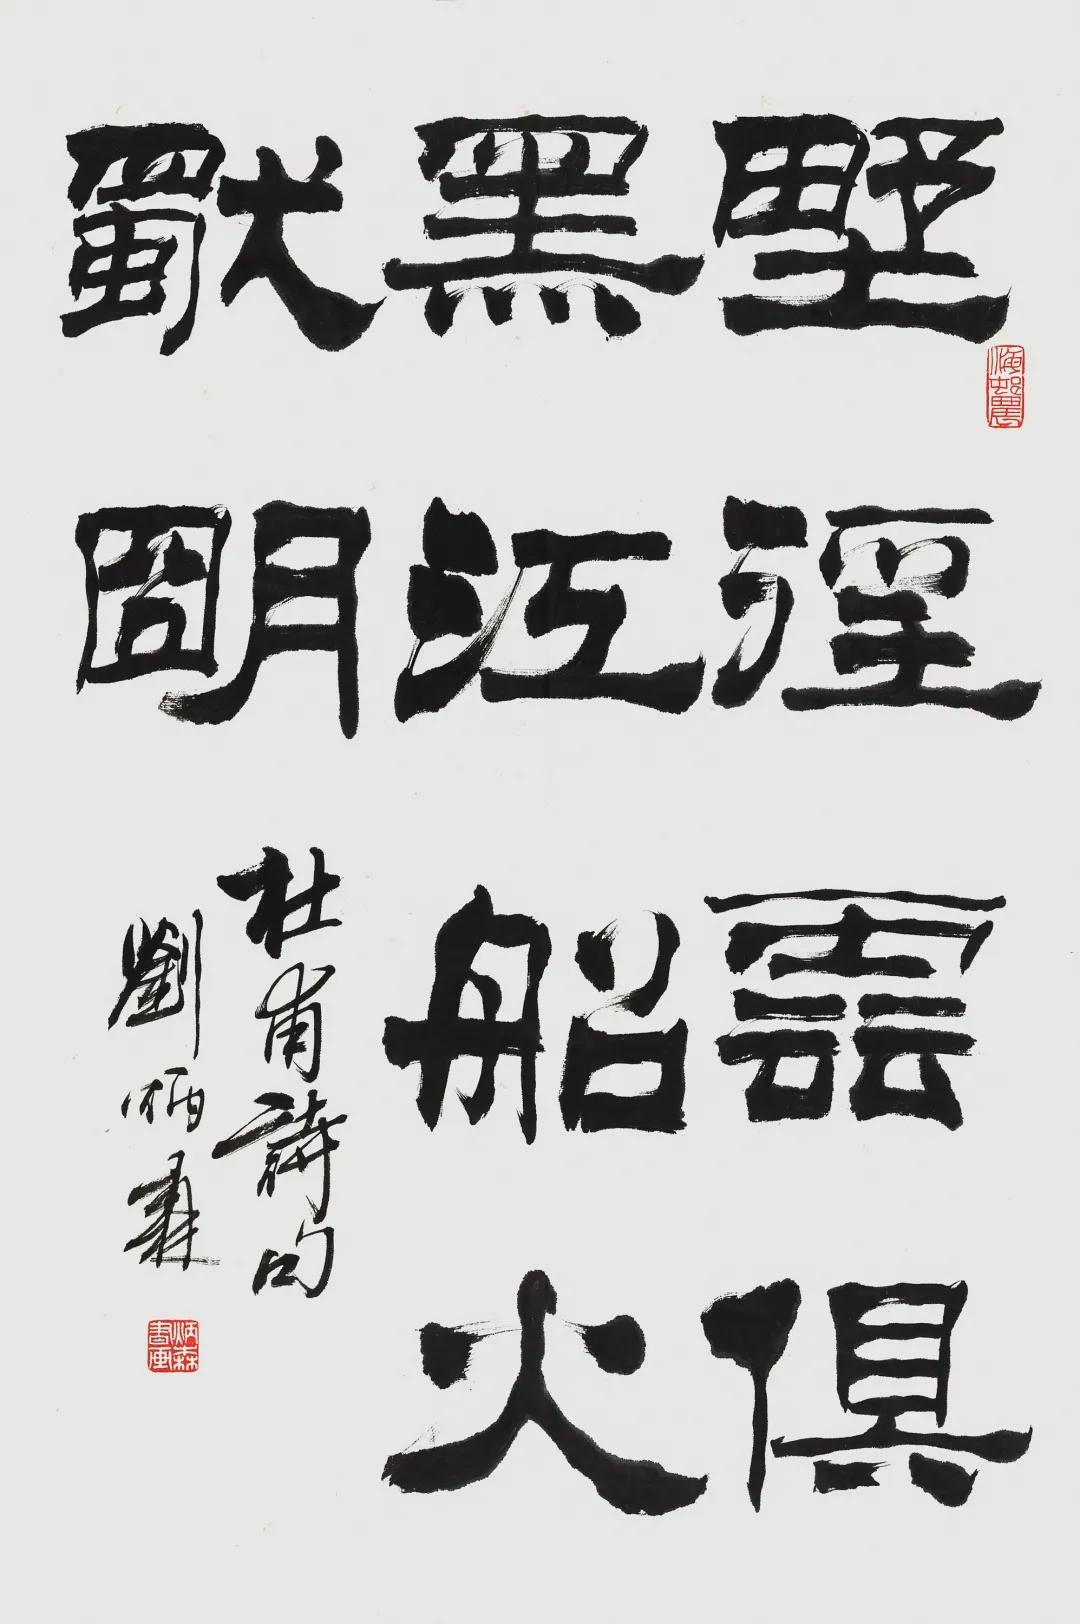 野徑雲俱
黑江船火
獨明
杜甫詩句
劉炳森
炳森書畫